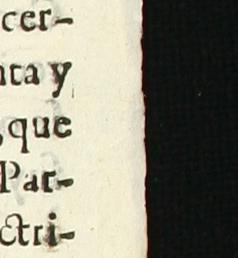 cer-
nta y
que
Par-
ctri-